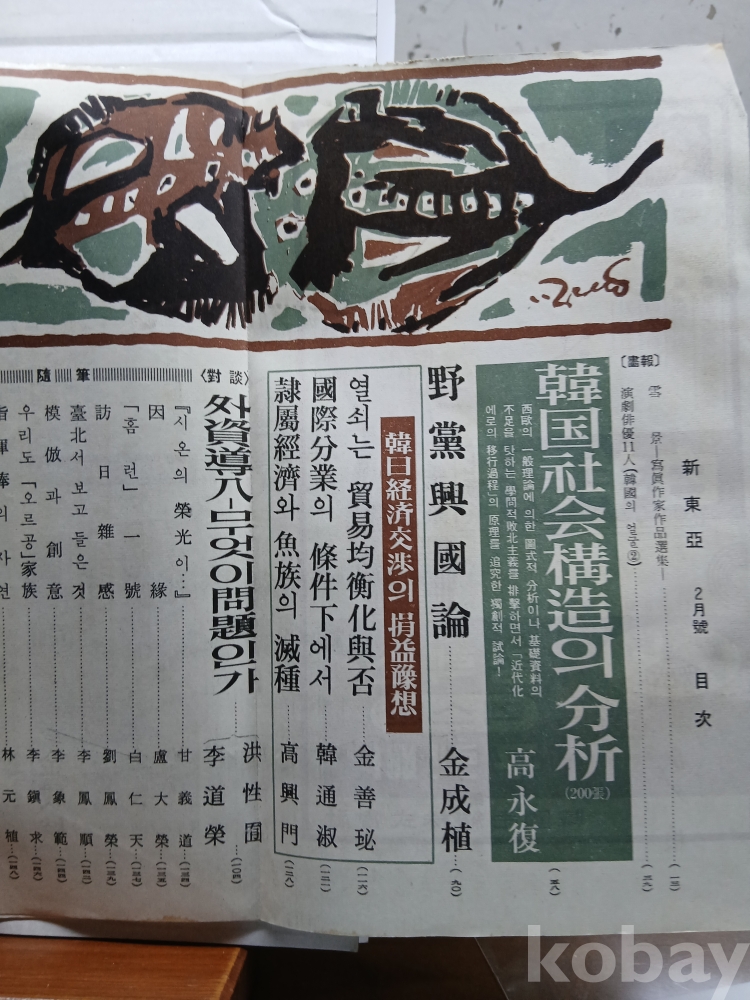 新東亞 2月號 目次
〔畫報〕
雪景—寫眞作家作品選集—(一三)
演劇俳優11人(韓國의 얼굴②)(三九)
韓国社会構造의 分析
(200張)
西歐의 一般理論에 의한 圖式的 分析이나 基礎資料의
不足을 탓하는 學問的敗北主義를 排擊하면서 「近代化
에로의 移行過程」의 原理를 追究한 獨創的 試論!
高永復(五八)
野黨興國論 金成植(九〇)
韓日経済交渉의 損益豫想
열쇠는 貿易均衡化與否 金善珌(一一六)
國際分業의 條件下에서 韓通淑(一二一)
隷屬經濟와 魚族의 滅種 高興門(一二八)
〈對談〉
外資導入—무엇이問題인가 洪性囿
李道榮(一〇四)
隨筆
『시온의 榮光이…』 甘義道(一三四)
因緣 盧大榮(一三五)
「홈런」一號 白仁天(一三七)
訪日雜感 劉鳳榮(一三九)
臺北서 보고들은것 李鳳順(一四二)
模倣과 創意 李象範(一四四)
우리도「오르공」家族 李鎭求(一四六)
指揮奉의 사연 林元植(一四八)
kobay